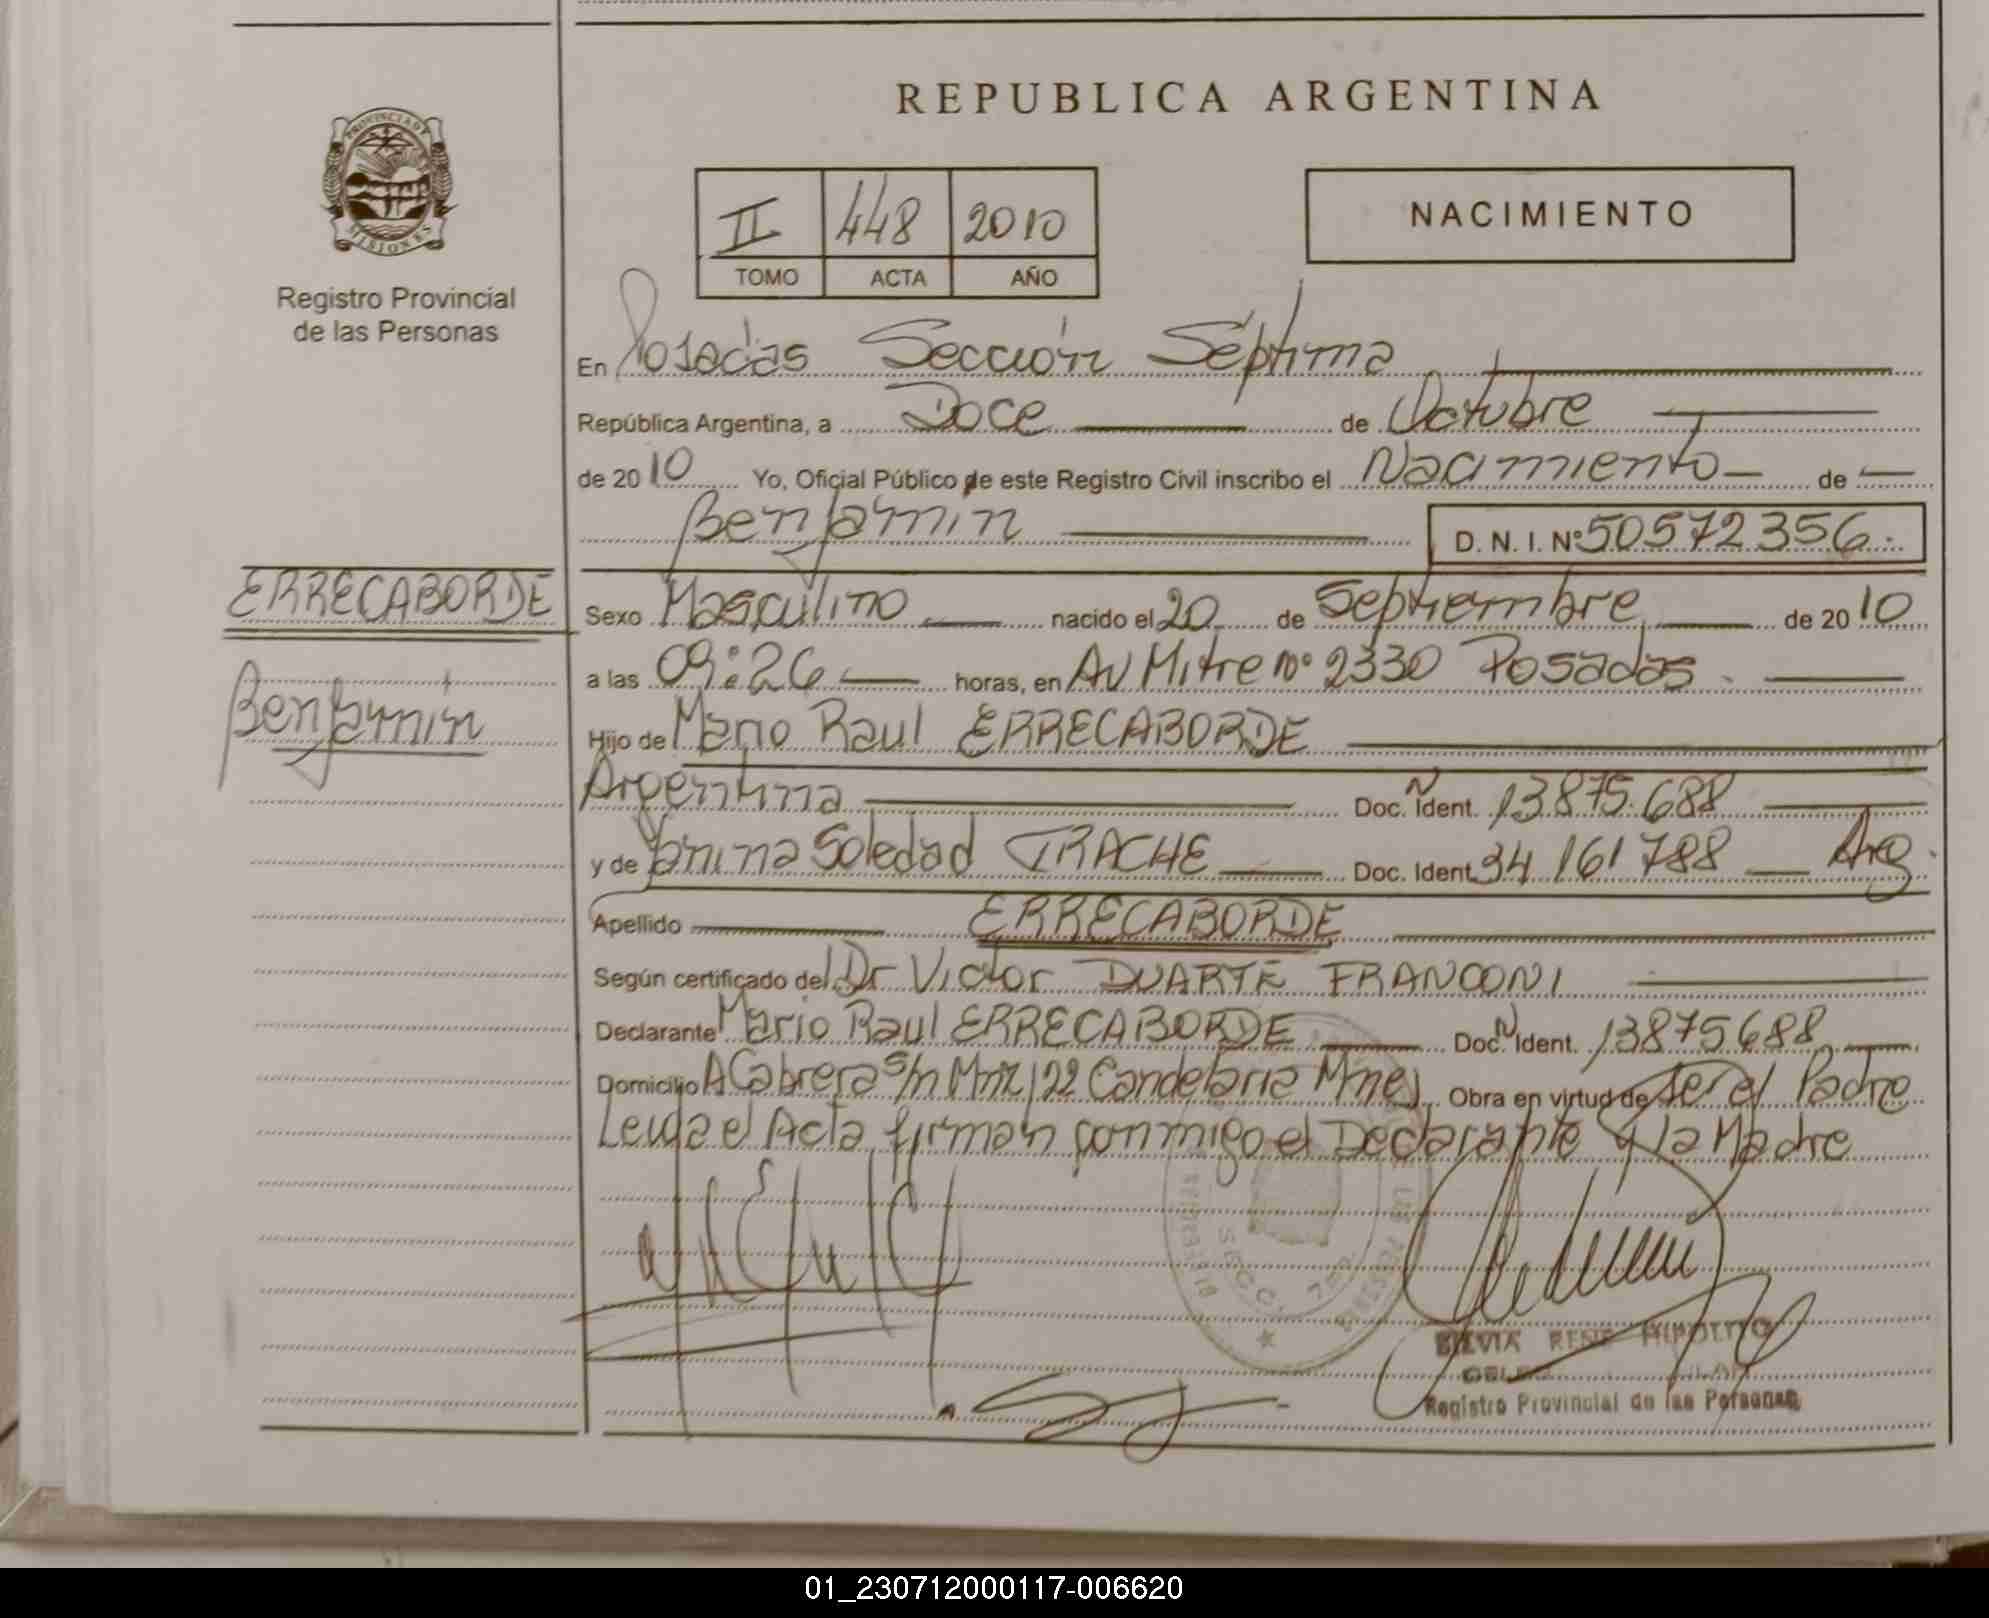 REPUBLICA ARGENTINA
PROVINCIA DE
MISIONES
Registro Provincial
de las Personas
II 448 2010
TOMO ACTA AÑO
NACIMIENTO
En Posadas Sección Séptima
República Argentina, a Doce de Octubre
de 2010 Yo, Oficial Público de este Registro Civil inscribo el Nacimiento de
Benjamín D. N. I. Nº 50572356.
ERRECABORDE
Benjamín
Sexo Masculino nacido el 20 de Septiembre de 2010
a las 09:26 horas, en Av Mitre nº 2330 Posadas.
Hijo de Mario Raul ERRECABORDE
Argentina Doc. N Ident. 13875.688
y de Yanina Soledad TRACHE Doc. Ident. 34 161 788 Arg.
Apellido ERRECABORDE
Según certificado del Dr Victor DUARTE FRANCONI
Declarante Mario Raul ERRECABORDE Doc. N Ident. 13875688
Domicilio A Cabrera s/n Mnz 122 Candelaria Mnes Obra en virtud de ser el Padre
Leida el Acta firman conmigo el Declarante y la Madre
SECC. 7
SILVIA RENE HIPOLITO
Registro Provincial de las Personas
01_230712000117-006620